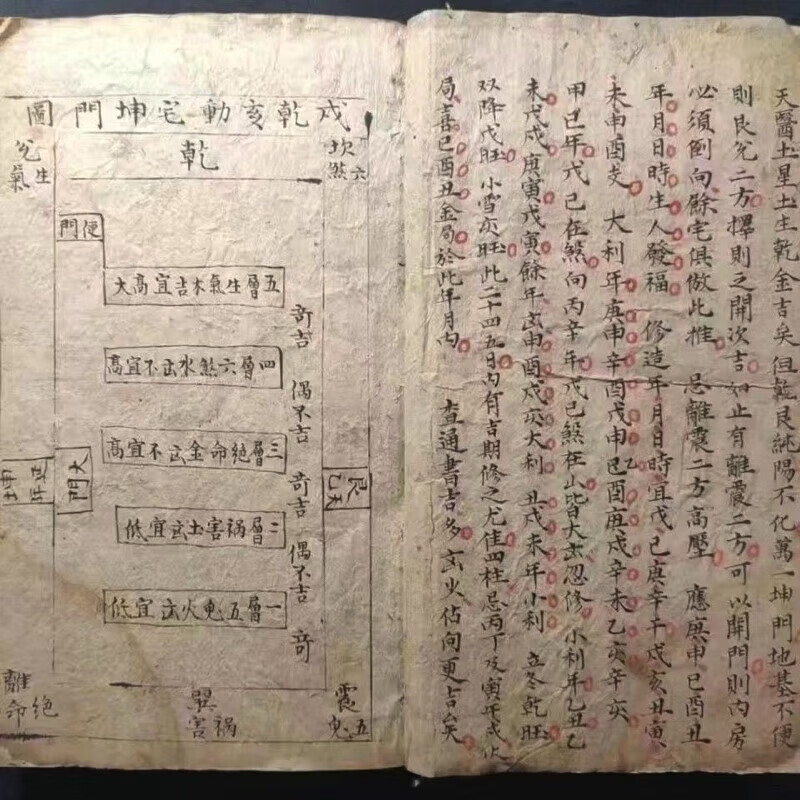 天醫土星土生乾金吉矣但乾艮純陽不化萬一坤門地基不便
則艮兌二方擇則之開次吉如止有離震二方可以開門則內房
必須倒向餘宅俱倣此推 忌離震二方高壓 應庚申巳酉丑
年月日時生人發福 修造年月日時宜戊己庚辛干戌亥丑寅
未申酉支 大利年庚申辛酉戊申己酉庚戌辛未乙亥辛亥
甲己年戊己在煞向丙辛年戊己煞在山皆大㐫忽修小利年乙丑乙
未戊戌庚寅戊寅餘年㐫申酉戌亥大利 丑戌未年小利 立冬乾旺
双降戌旺小雪亥旺此二十四五日內有吉期修之尤佳四柱忌丙丁及寅年戌火
局喜巳酉丑金局於此年月內 查通書吉多㐫火佔向更吉矣
戌乾亥動宅坤門圖
乾
坎六煞
兌生氣
便門
五層生氣木吉宜高大
奇吉
四層六煞水㐫不宜高
偶不吉
三層絕命金㐫不宜高
奇吉
二層禍害土㐫宜低
偶不吉
一層五鬼火㐫宜低
奇
大門
坤延年
艮天乙
震五鬼
巽禍害
離絕命